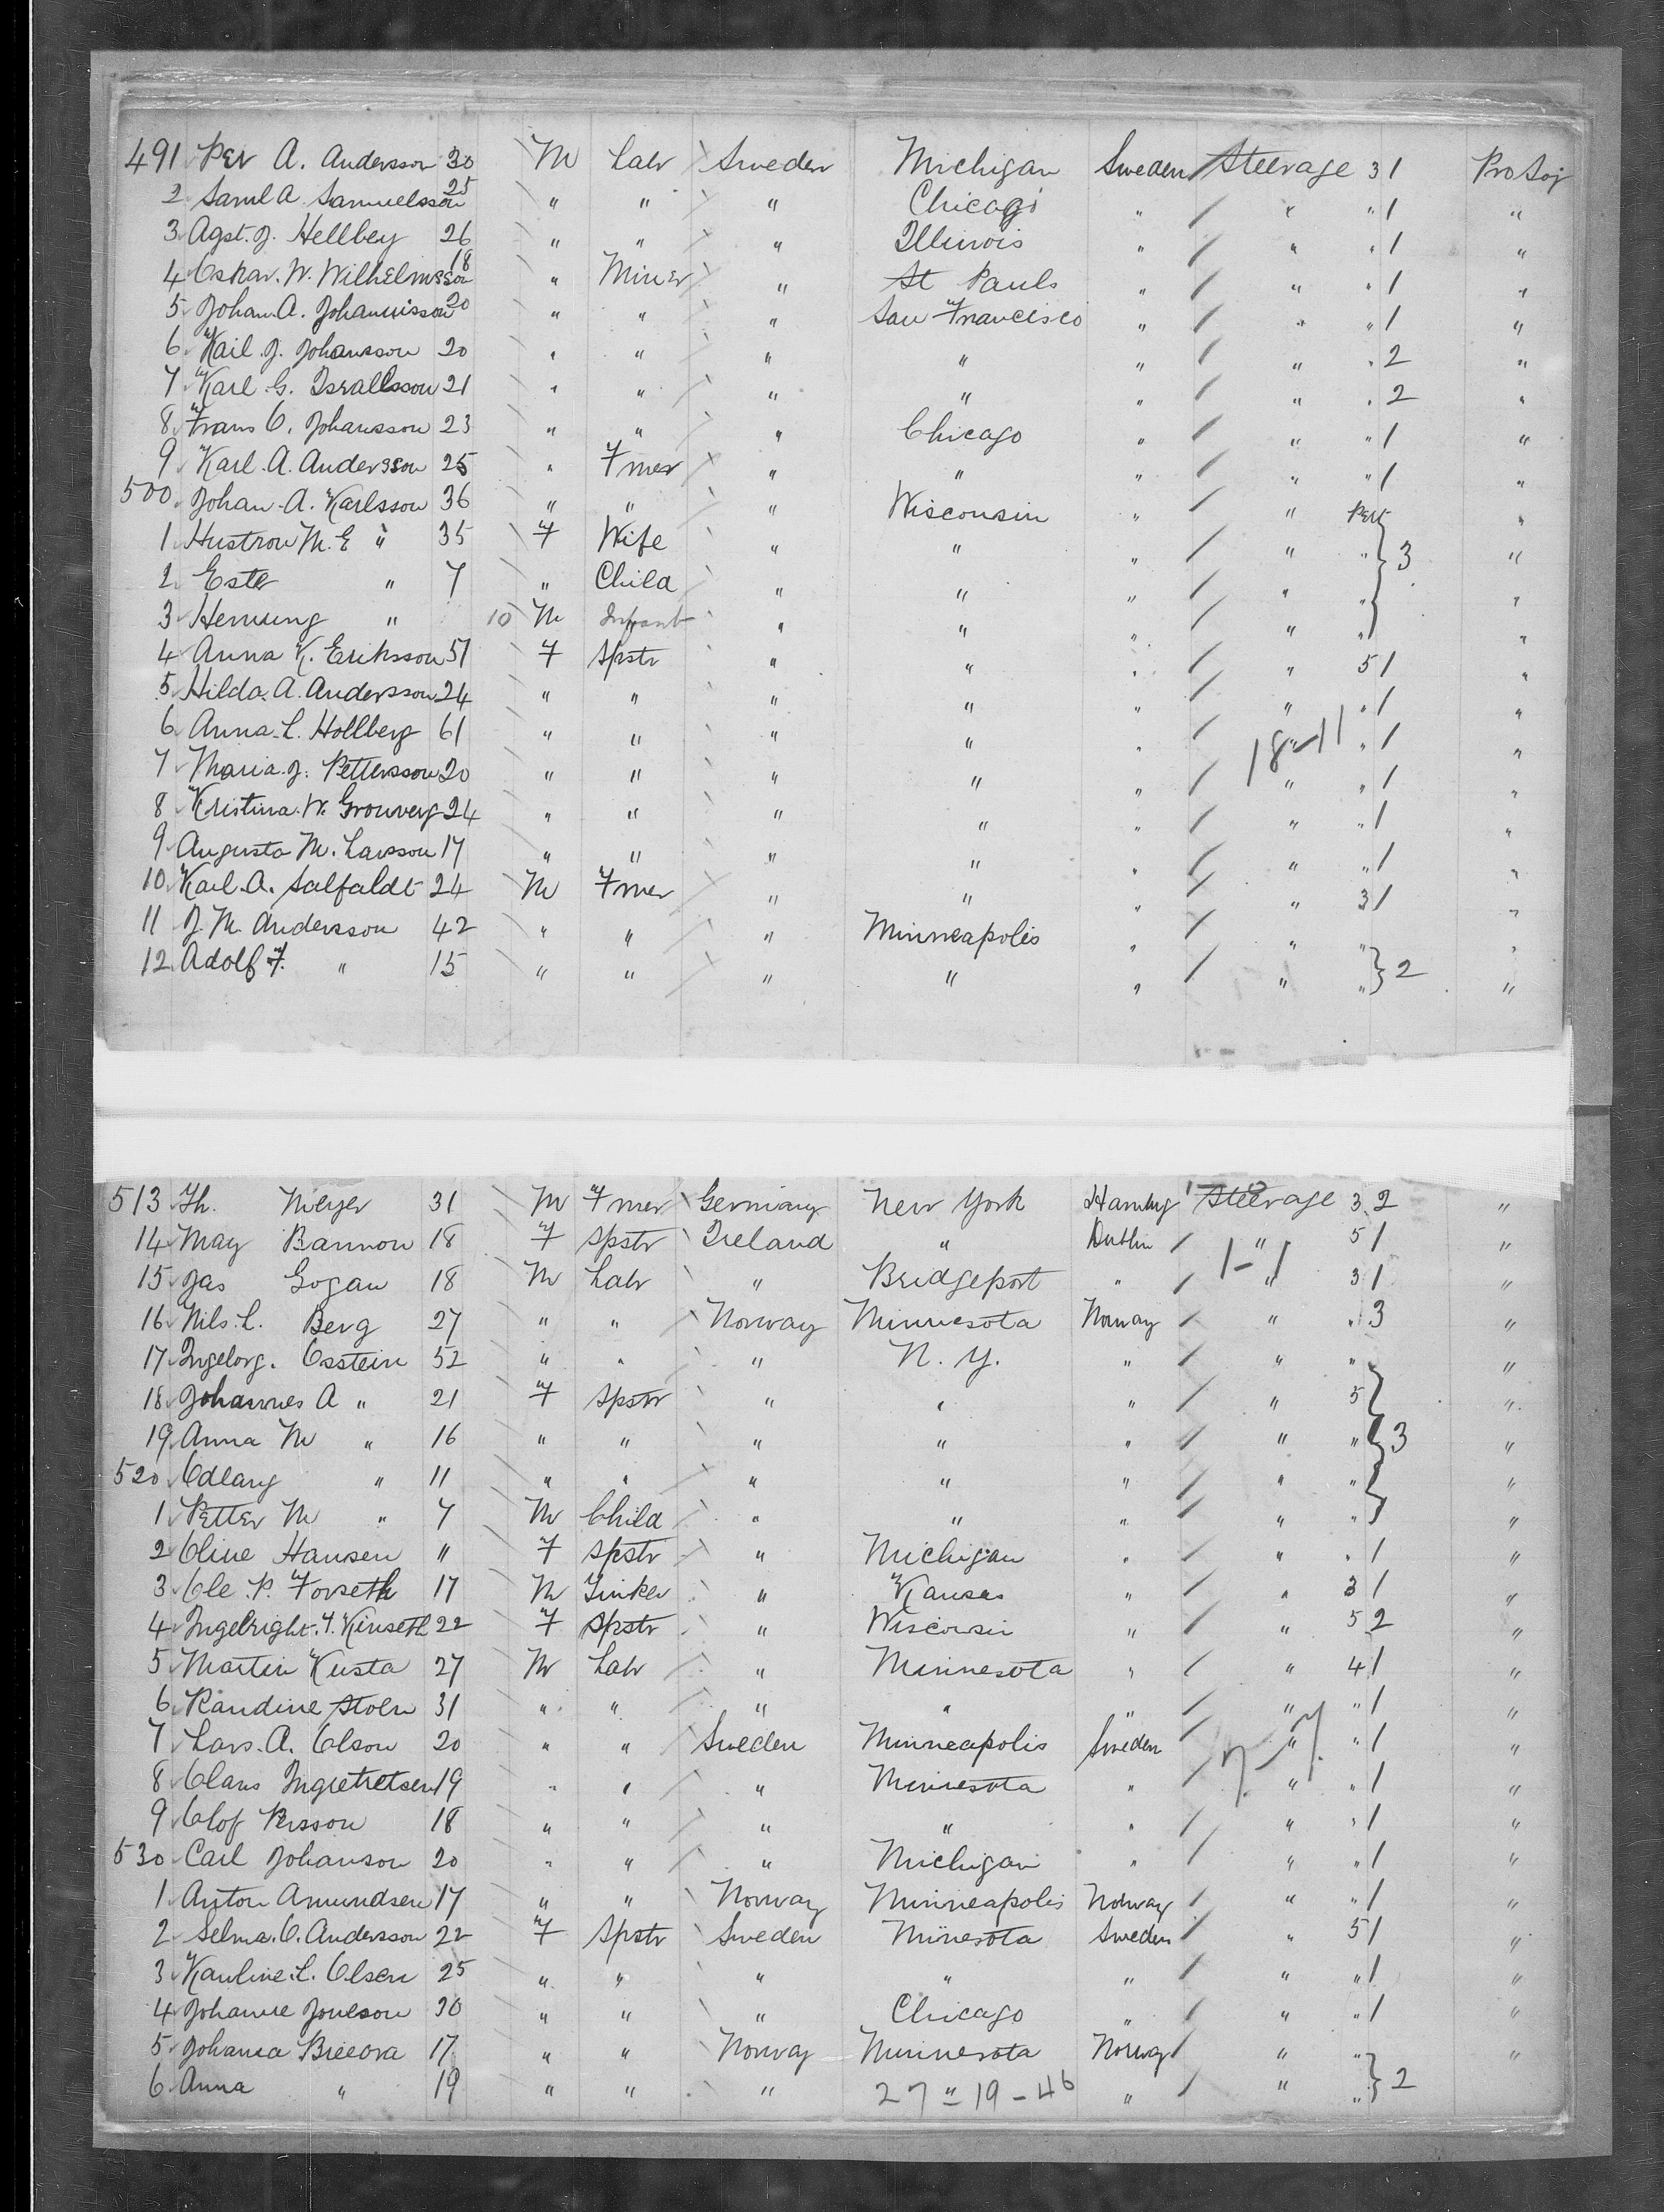 491 Per A. Andersson 30 M Labr Sweden Michigan Sweden Steerage 3 1 Pro Soj
2 Saml A Samuelsson 25 " " " Chicago " " " 1 "
3 Agst. J. Hellbey 26 " " " Illinois " " " 1 "
4 Oskar. W. Wilhelmsson 18 " Miner " St Pauls " " " 1 "
5 Johan A. Johannisson 20 " " " San Francisco " " " 1 "
6 Kail J. Johansson 20 " " " " " " " 2 "
7 Karl G. Israllsson 21 " " " " " " " 2 "
8 Frans O. Johansson 23 " " " Chicago " " " 1 "
9 Karl. A. Andersson 25 " Fmer " " " " " 1 "
500 Johan A. Karlsson 36 " " " Wisconsin " " "
1 Hustrow M. E " 35 F Wife " " " " " 3 "
2 Ester " 7 " Child " " " " " "
3 Henning " 10 M Infant " " " " " "
4 Anna K. Eriksson 51 F Spstr " " " " 5 1 "
5 Hilda. A. Andersson 24 " " " " " " " 1 "
6 Anna. L. Hollberg 61 " " " " " 18-11 " 1 "
7 Maria. J. Pettersson 20 " " " " " " " 1 "
8 Kristina. W. Gronverg 24 " " " " " " " 1 "
9 Augusta M. Larsson 17 " " " " " " " 1 "
10 Karl. A. Salfaldt 24 M Fmer " " " " 3 1 "
11 J. M. Andersson 42 " " " Minneapolis " " " "
12 Adolf F. " 15 " " " " " " " 2 "
513 Th. Meyer 31 M Fmer Germany New York Hambg Steerage 3 2 "
14 May Bannon 18 F Spstr Ireland " Dublin " 5 1 "
15 Jas Gogan 18 M Labr " Bridgeport " 1-1 " 3 1 "
16 Nils. L. Berg 27 " " Norway Minnesota Norway " " 3 "
17 Ingelorg. Osstein 52 " " " N. Y. " " " "
18 Johannes A " 21 F Spstr " " " " 5 "
19 Anna M " 16 " " " " " " " 3 "
520 Odlaug " 11 " " " " " " " "
1 Petter M " 7 M Child " " " " " "
2 Oline Hansen " F Spstr " Michigan " " " 1 "
3 Ole P. Forseth 17 M Tinker " Kansas " " 3 1 "
4 Ingelright. T. Kinseth 22 F Spstr " Wisconsin " " 5 2 "
5 Martin Kusta 27 M Labr " Minnesota " " 4 1 "
6 Randine Stoen 31 " " " " " " " 1 "
7 Lars. A. Olson 20 " " Sweden Minneapolis Sweden " " 1 "
8 Olans Ingretetsen 19 " " " Minnesota " 7-7 " " 1 "
9 Olof Persson 18 " " " " " " " 1 "
530 Carl Johanson 20 " " " Michigan " " " 1 "
1 Anton Amundsen 17 " " Norway Minneapolis Norway " " 1 "
2 Selma. O. Andersson 22 F Spstr Sweden Minesota Sweden " 5 1 "
3 Kauline. L. Olsen 25 " " " " " " " 1 "
4 Johanne Joneson 30 " " " Chicago " " " 1 "
5 Johanna Breeora 17 " " Norway Minnesota Norway " " "
6 Anna " 19 " " " 27 = 19 - 46 " " " 2